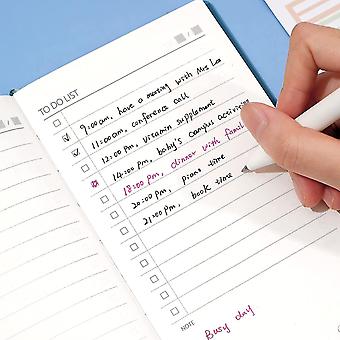 TO DO LIST
9:00am, have a meeting with Mrs Lee
11:00am, conference call
12:00 Pm, vitamin supplement
14:00 Pm, baby's campus activities
18:00 Pm, dinner with family
20:00 Pm, piano time
21:00 Pm, book time
NOTE
Busy day